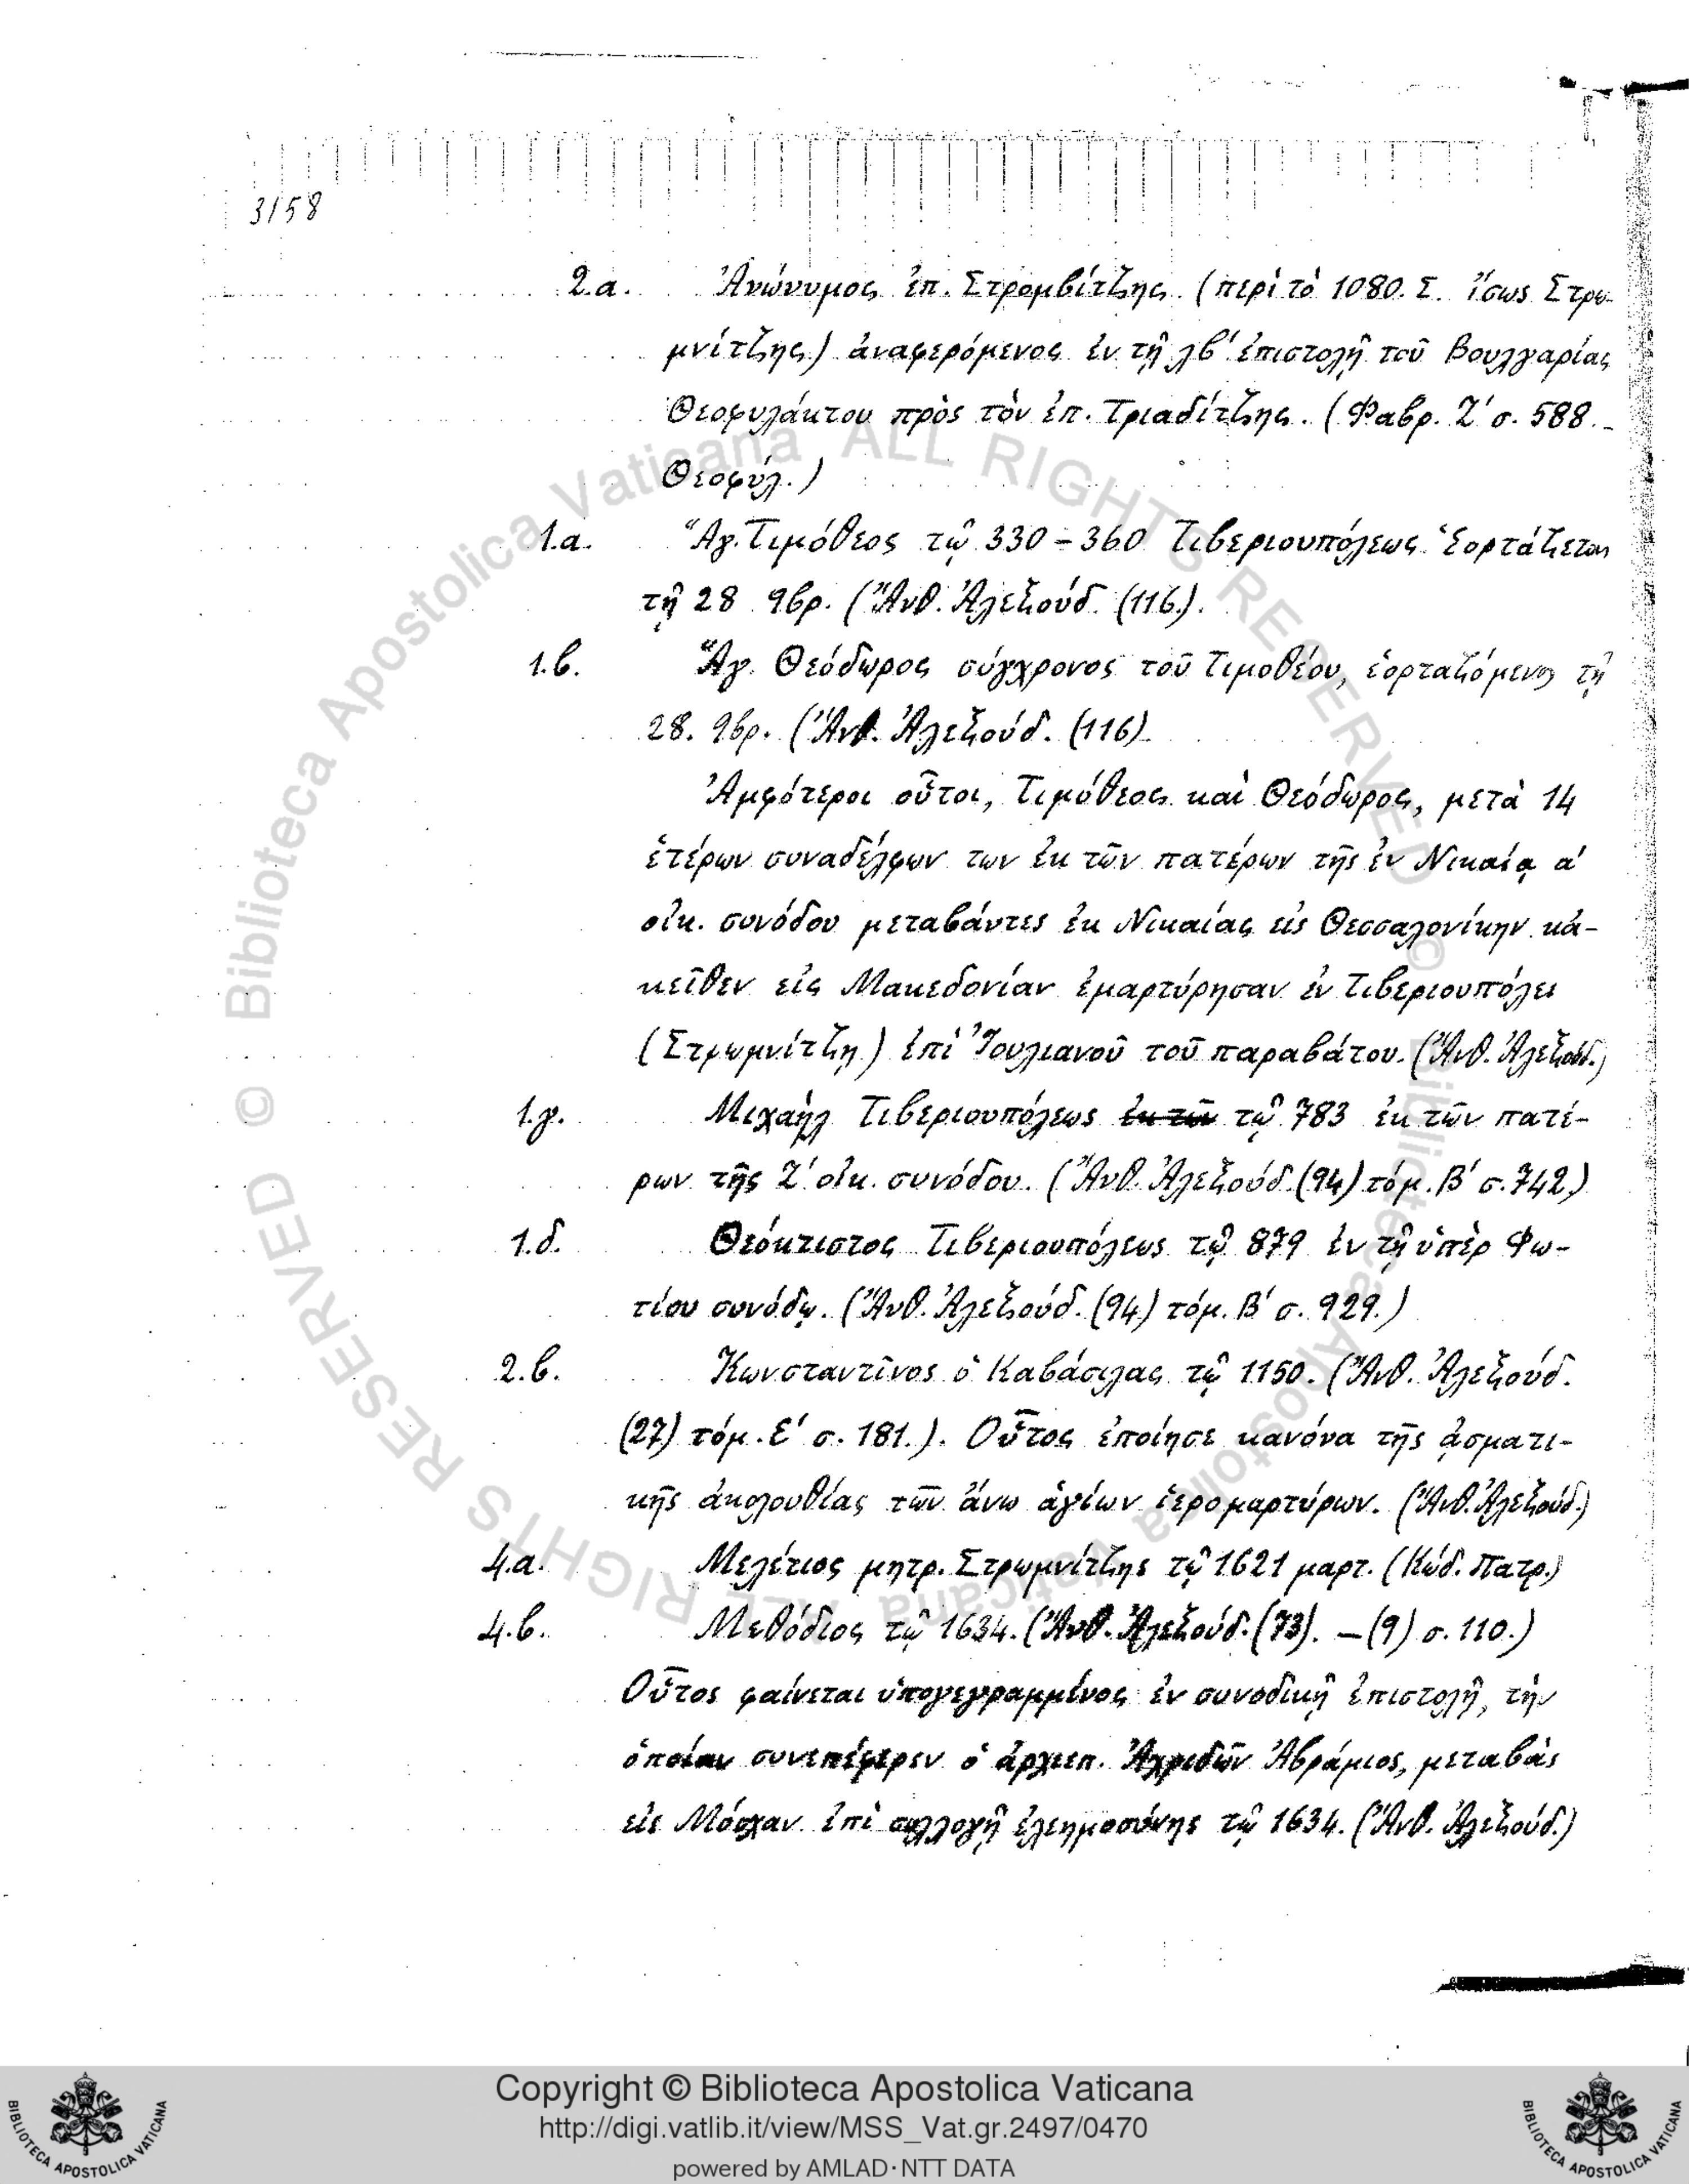 3158
2.α. Ἀνώνυμος ἐπ. Στρομβίτζης. (περὶ τὸ 1080. Σ. ἴσως Στρω-
μνίτζης) ἀναφερόμενος ἐν τῇ λβ' ἐπιστολῇ τοῦ Βουλγαρίας
Θεοφυλάκτου πρὸς τὸν ἐπ. Τριαδίτζης. (Φαβρ. Ζ' σ. 588. -
Θεοφύλ.)
1.α. Ἅγ. Τιμόθεος τῷ 330 - 360 Τιβεριουπόλεως. Ἑορτάζεται
τῇ 28 9βρ. (Ἄνθ. Ἀλεξούδ. (116.).
1.β. Ἅγ. Θεόδωρος σύγχρονος τοῦ Τιμοθέου, ἑορταζόμενος τῇ
28. 9βρ. (Ἄνθ. Ἀλεξούδ. (116).
Ἀμφότεροι οὗτοι, Τιμόθεος καὶ Θεόδωρος, μετὰ 14
ἑτέρων συναδέλφων των ἐκ τῶν πατέρων τῆς ἐν Νικαίᾳ α'
οἰκ. συνόδου μεταβάντες ἐκ Νικαίας εἰς Θεσσαλονίκην κἀ-
κεῖθεν εἰς Μακεδονίαν ἐμαρτύρησαν ἐν Τιβεριουπόλει
(Στρωμνίτζῃ) ἐπὶ Ἰουλιανοῦ τοῦ παραβάτου. (Ἄνθ. Ἀλεξούδ.)
1.γ. Μιχαὴλ Τιβεριουπόλεως ἐκ τῶν τῷ 783 ἐκ τῶν πατέ-
ρων τῆς Ζ' οἰκ. συνόδου. (Ἄνθ. Ἀλεξούδ. (94) τόμ. Β' σ. 742.)
1.δ. Θεόκτιστος Τιβεριουπόλεως τῷ 879 ἐν τῇ ὑπὲρ Φω-
τίου συνόδῳ. (Ἄνθ. Ἀλεξούδ. (94) τόμ. Β' σ. 929.)
2.β. Κωνσταντῖνος ὁ Καβάσιλας τῷ 1150. (Ἄνθ. Ἀλεξούδ.
(27) τόμ. Ε' σ. 181.). Οὗτος ἐποίησε κανόνα τῆς ᾀσματι-
κῆς ἀκολουθίας τῶν ἄνω ἁγίων ἱερομαρτύρων. (Ἄνθ. Ἀλεξούδ.)
4.α. Μελέτιος μητρ. Στρωμνίτζης τῷ 1621 μαρτ. (Κώδ. Πατρ.)
4.β. Μεθόδιος τῷ 1634. (Ἄνθ. Ἀλεξούδ. (73). - (9) σ. 110.)
Οὗτος φαίνεται ὑπογεγραμμένος ἐν συνοδικῇ ἐπιστολῇ, τὴν
ὁποίαν συνεπέφερεν ὁ ἀρχιεπ. Ἀχριδῶν Ἀβράμιος, μεταβὰς
εἰς Μόσχαν ἐπὶ συλλογῇ ἐλεημοσύνης τῷ 1634. (Ἄνθ. Ἀλεξούδ.)
© Biblioteca Apostolica Vaticana ALL RIGHTS RESERVED © Biblioteca Apostolica Vaticana ALL RIGHTS RESERVED
Copyright © Biblioteca Apostolica Vaticana
http://digi.vatlib.it/view/MSS_Vat.gr.2497/0470
powered by AMLAD·NTT DATA
BIBLIOTECA APOSTOLICA VATICANA
BIBLIOTECA APOSTOLICA VATICANA